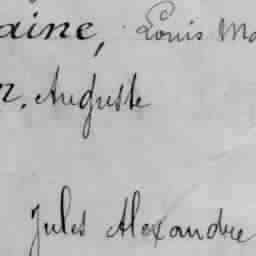 aine, Louis Ma
n, Auguste
Jules Alexandre